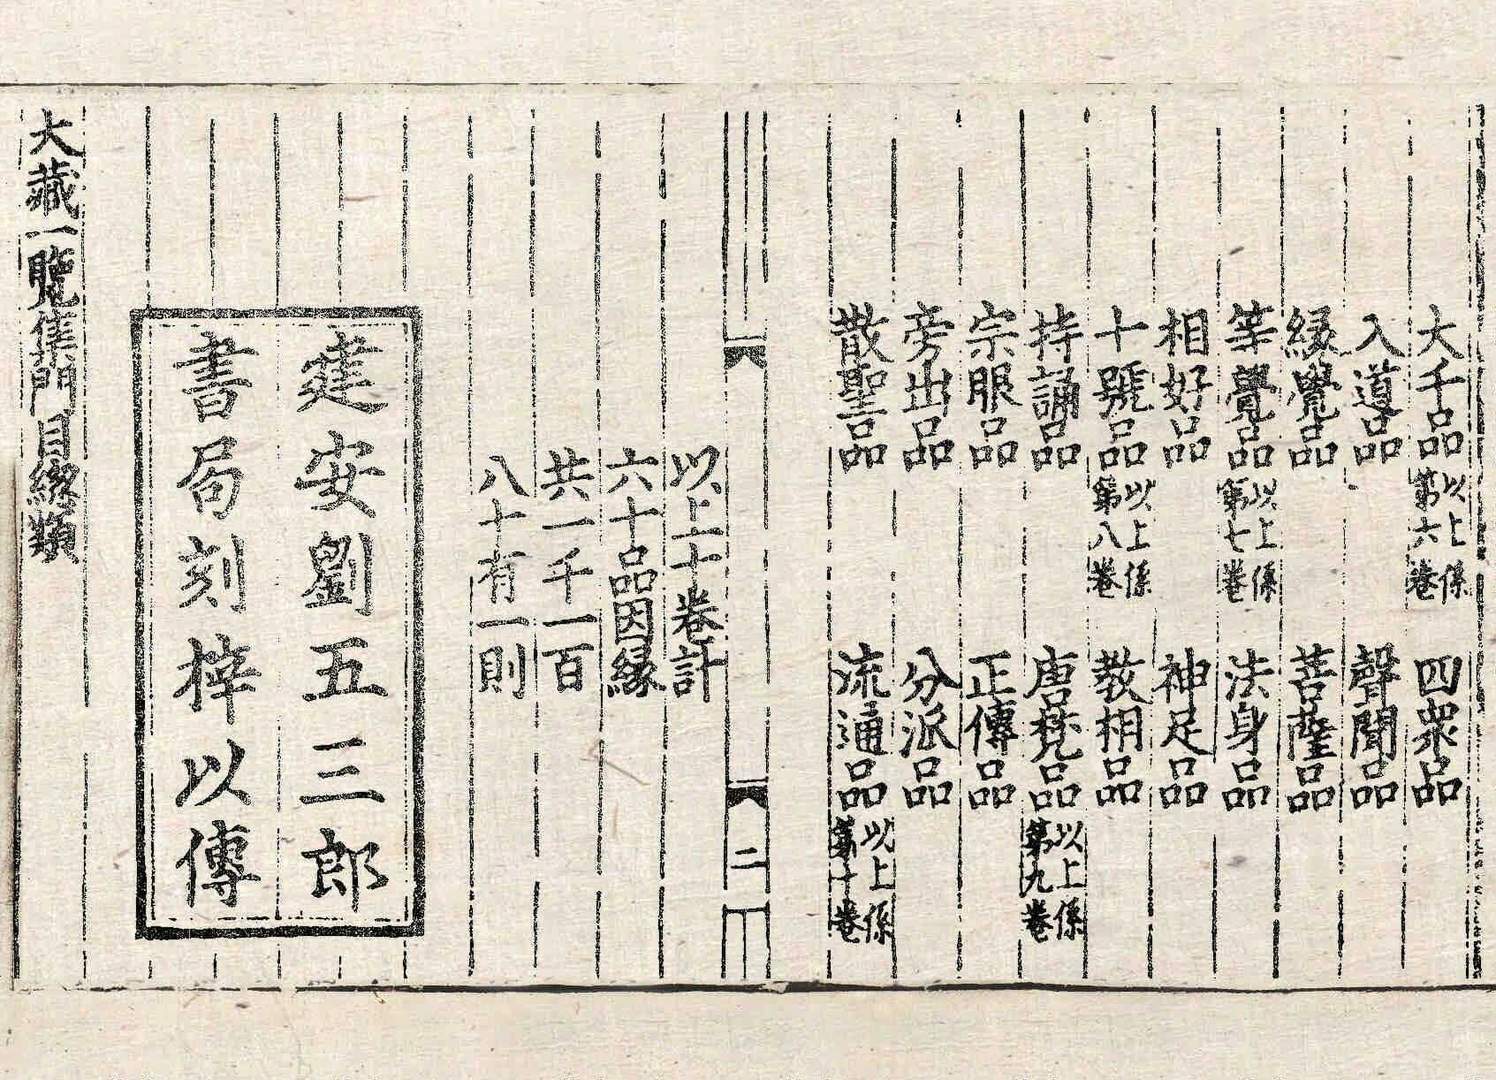 大千品 以上係第六卷 四衆品
入道品 聲聞品
緣覺品 菩薩品
等覺品 以上係第七卷 法身品
相好品 神足品
十號品 以上係第八卷 教相品
持誦品 唐梵品 以上係第九卷
宗眼品 正傳品
旁出品 分派品
散聖品 流通品 以上係第十卷
二
以上十卷計
六十品因緣
共一千一百
八十有一則
建安劉五三郎
書局刻梓以傳
大藏一覽集門目緣類